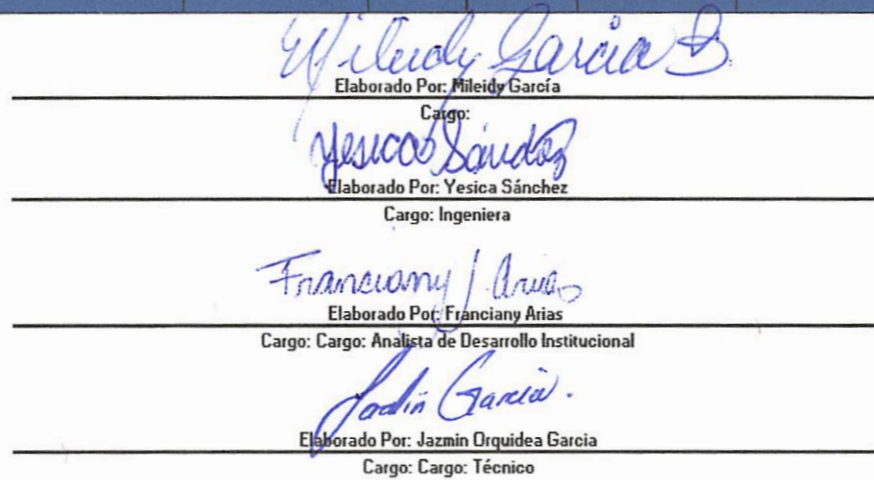 Mileidy Garcia B.
Elaborado Por: Mileidy García
Cargo:
Yesica Sánchez
Elaborado Por: Yesica Sánchez
Cargo: Ingeniera
Franciany J Arias
Elaborado Por: Franciany Arias
Cargo: Cargo: Analista de Desarrollo Institucional
García.
Elaborado Por: Jazmin Orquidea Garcia
Cargo: Cargo: Técnico